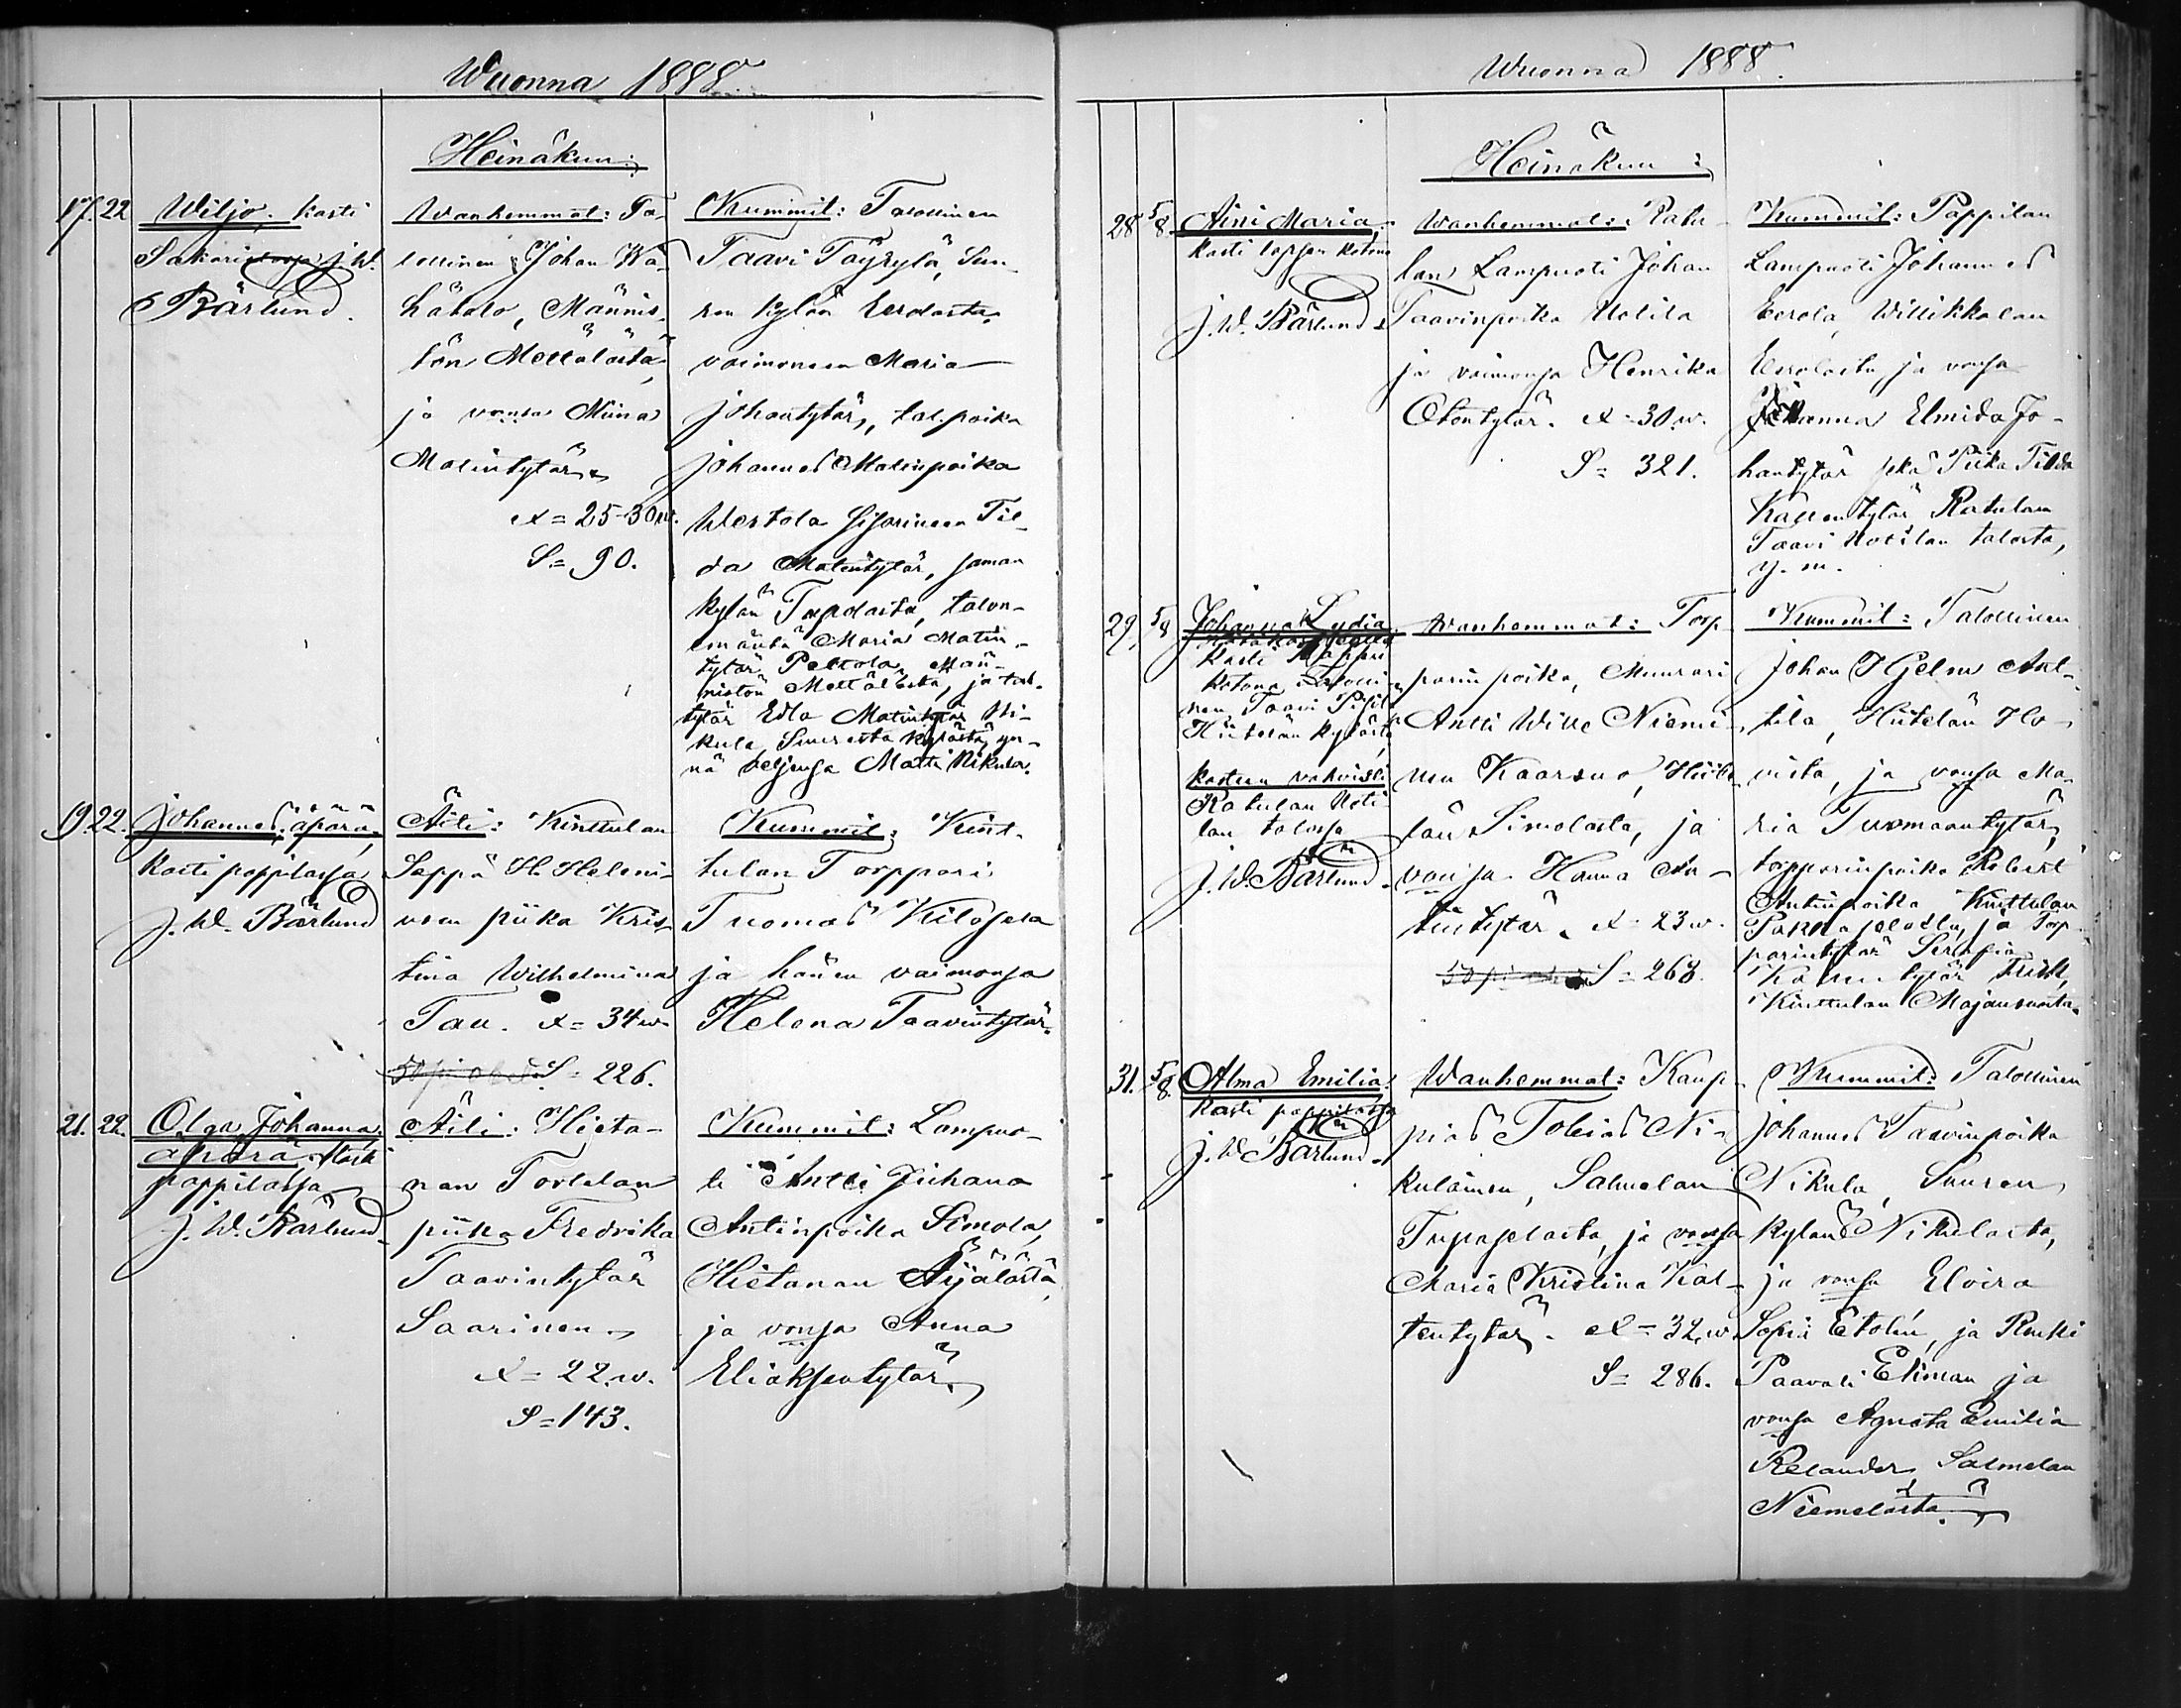 Wuonna 1888.
Heinäkuu:
17. 22 Wiljo, kasti
Sakaristossa J. W.
Bärlund.
Wanhemmat: Ta-
lollinen Johan Wä-
hätalo, Männis-
tön Mettälästä,
ja vaonsa Miina
Matintytär.
x = 25-30 w.
S = 90.
Kummit: Talollinen
Taavi Täyrylä, Suu
ren kylän Eerolasta,
vaimoneen Maria
Johantytär, tal. poika
Johannes Matinpoika
Westola sisarineen Til-
da Matintytär, saman
kylän talon-
emäntä Maria Matin-
tytär Peltola, Män-
nistön Mettälästä, ja tal.
tytär Edla Matintytär Ni-
kula, Suuresta kylästä, yn-
nä veljensä Matti Nikula.
19 22. Johannes, äpärä,
kasti pappilassa
J. W. Bärlund
Äiti: Kinttulan
Seppä H. Heleni-
uen piika Kris-
tina Wilhelmina
Tau. x = 34 w.
S = 226.
Kummit: Kint-
tulan Torppari
Tuomas
ja hänen vaimonsa
Helena Taavintytär.
21. 22. Olga Johanna,
äpärä, kasti
pappilassa
J. W. Bärlund
Äiti: Hieta-
nan Torkelan
piika Fredrika
Taavintytär
Saarinen
x = 22 w.
S = 143.
Kummit: Lampuo-
ti Antti Juhana
Antinpoika Simola,
Hietanan Äijälästä,
ja vaonsa Anna
Eliaksentytär.
Wuonna 1888.
Heinäkuu:
28 5/8. Aini Maria,
kasti lapsen kotona
J. W. Bärlund
Wanhemmat: Ratu-
lan Lampuoti Johan
Taavinpoika Uotila
ja vaimonsa Henrika
Otontytär. x = 30 w.
S = 321.
Kummit: Pappilan
Lampuoti Johannes
Eerola, Willikkalan
Eerolasta, ja vaonsa
Johanna Elmida Jo-
hantytär sekä Piika Tilda
Kallentytär Ratulan
Taavi Uotilan talosta,
y. m.
29. 5/8 Johanna Lydia,
kasti
kotona Talolli-
nen Taavi
Hiitelän kylästä,
kasteen vahvisti
Ratulan Uoti-
lan talossa
J. W. Bärlund.
Wanhemmat: Torp
parin poika, Muurari
Antti Wille Niemi-
nen Kaarsuo, Hiite-
län Simolasta, ja
vaonsa Hanna An-
tintytär. x = 23 w.
S = 268.
Kummit: Talollinen
Johan Hjelm Ant-
tila, Hiitelän
ja vaonsa Ma-
ria Tuomaantytär,
torpparinpoika Robert
Antinpoika Kinttulan
ja Torp-
parintytär Serafia
Kinttulan Majansuolta.
31. 5/8. Alma Emilia,
kasti pappilassa
J. W. Bärlund.
Wanhemmat: Kaup-
pias Tobias Ni-
kulainen, Salmelan
Tupaselasta, ja vaonsa
Maria Kristina Kal-
lentytär. x = 32 w.
S = 286.
Kummit: Talollinen
Johannes Taavinpoika
Nikula, Suuren
kylän Nikulasta,
ja vaonsa Elvira
Sofia Etolin, ja Renki
Paavali Ehman ja
vaonsa Agnata Emilia
Relander, Salmelan
Niemelästä.